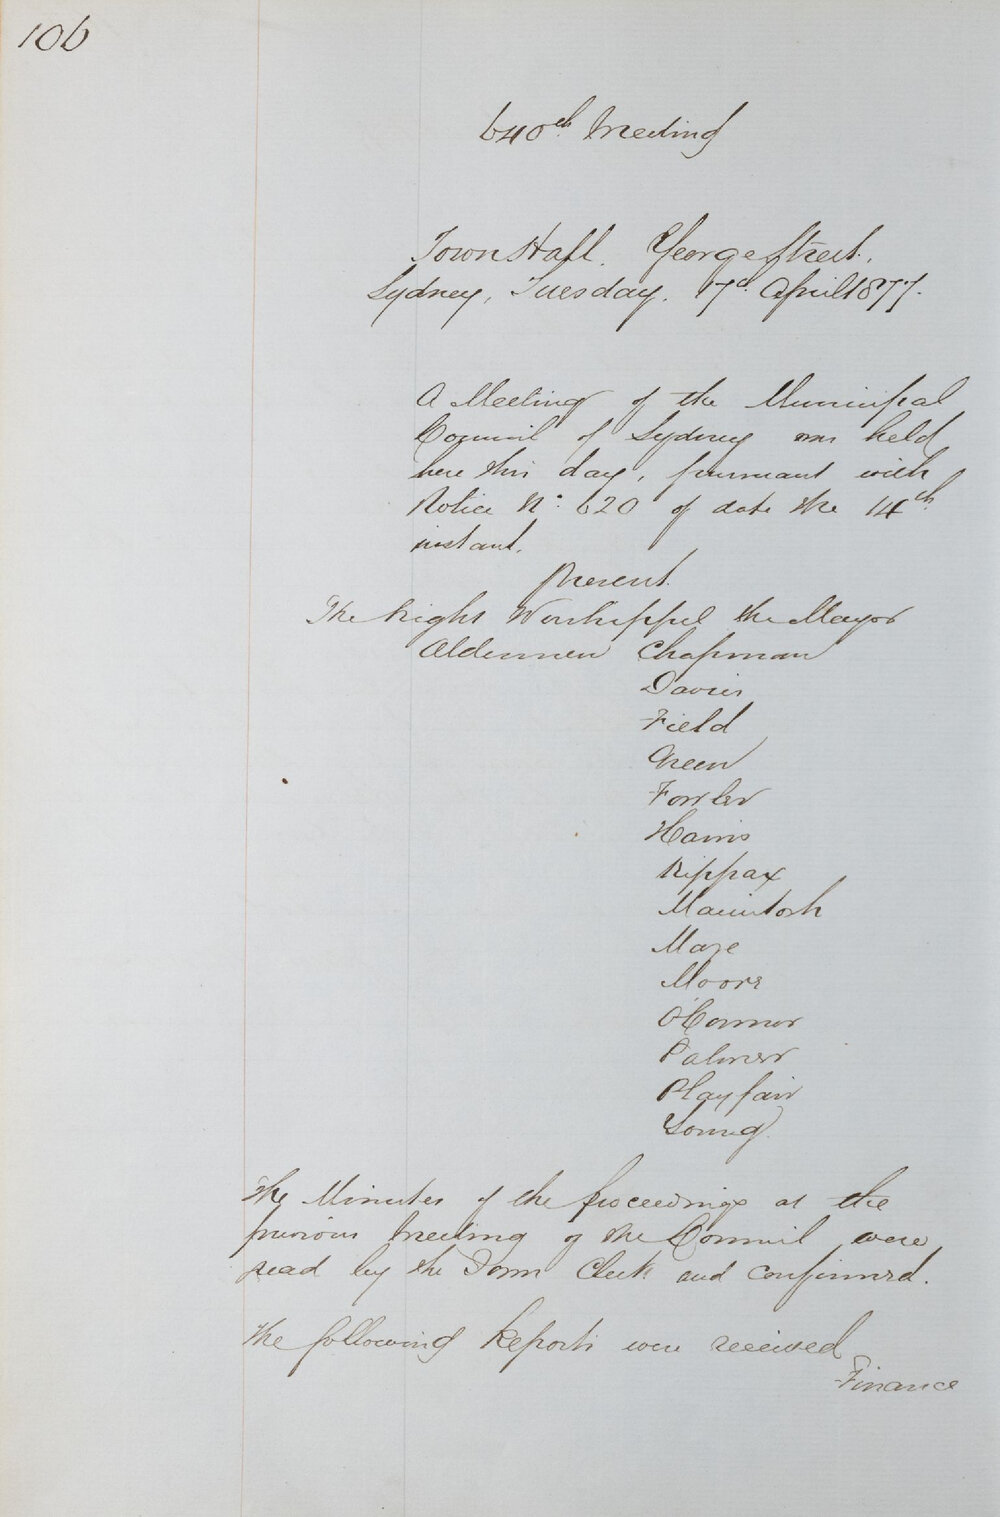 106
640th Meeting
Town Hall. George Street.
Sydney, Tuesday. 17th April 1877.
A Meeting of the Municipal
Council of Sydney was held
here this day, pursuant with
Notice No: 620 of date the 14th
instant.
Present.
The Right Worshipful the Mayor
Aldermen Chapman
Davies
Field
Green
Fowler
Harris
Kippax
Macintosh
Maze
Moore
O'Connor
Palmer
Playfair
Young
The Minutes of the proceedings at the
previous Meeting of the Council were
read by the Town Clerk and confirmed.
The following Reports were received
Finance